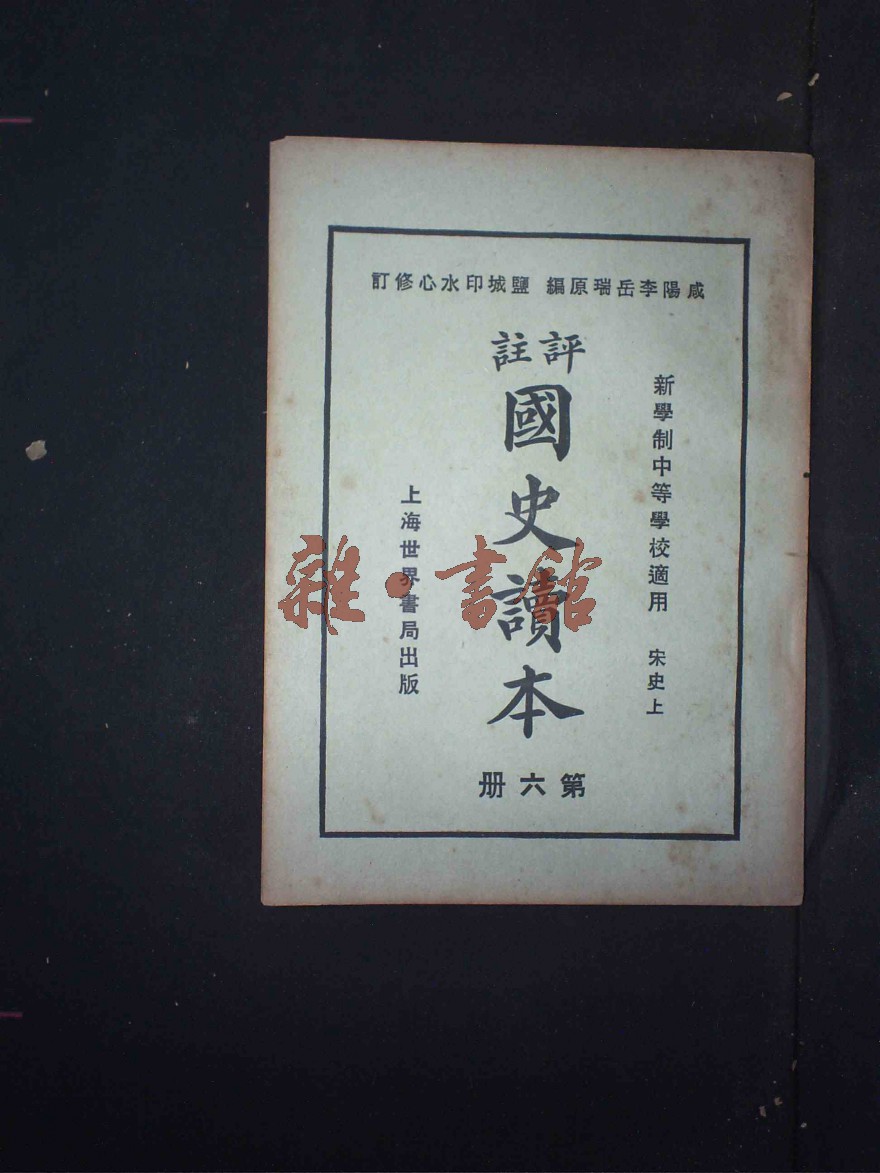 咸陽李岳瑞原編 鹽城印水心修訂
新學制中等學校適用 宋史上
評註
國史讀本
第六册
上海世界書局出版
雜·書館